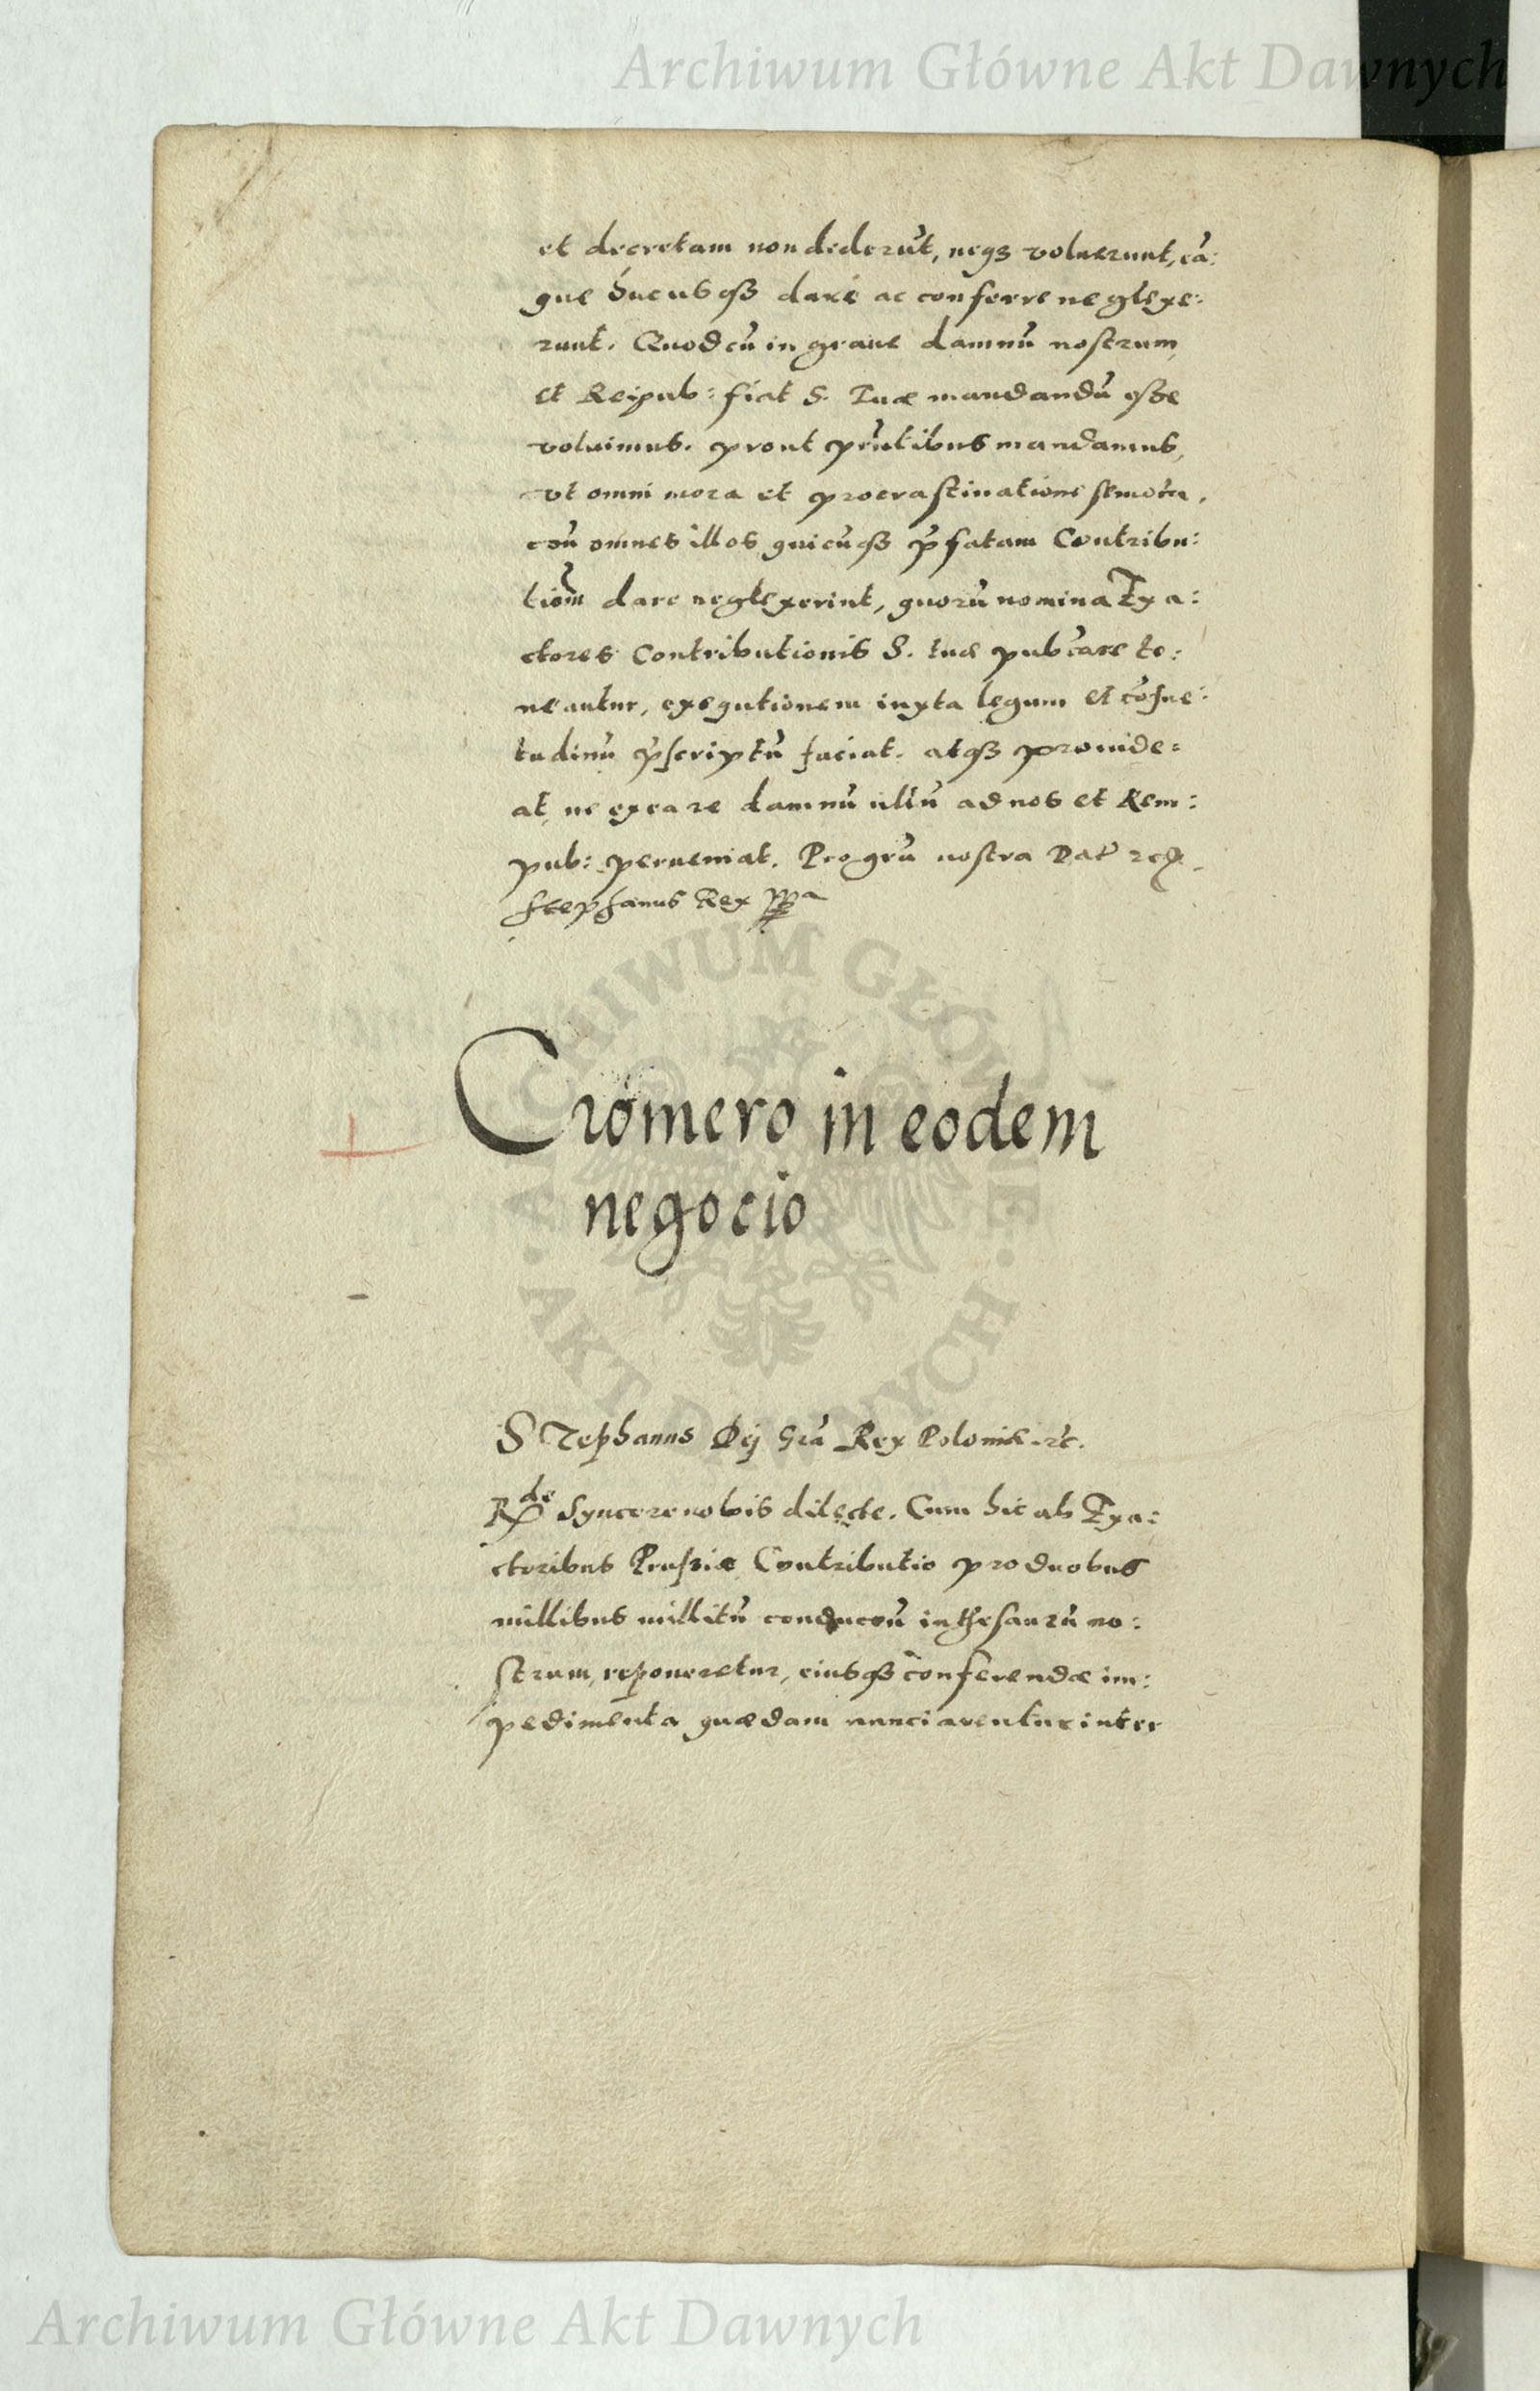 Archiwum Główne Akt Dawnych
et decretam non dederūt, neqȝ voluerunt, eā:
que hucusqȝ dare ac conferre neglexe:
runt. Quod cū in graue damnū nostrum
et Reipub: fiat S. Tuæ mandandū esse
voluimus. prout pn̄tibus mandamus,
vt omni mora et procrastinatione semota,
con̄ omnes illos quicūqȝ p̄fatam Contribu:
tiom̄ dare neglexerint, quorū nomina Exa:
ctores Contributionis S. tuæ pub̄care te:
neantur, exequtionem iuxta legum et cōsue:
tudinū p̄scriptū faciat. atqȝ prouide=
at, ne ex ea re damnū ullū ad nos et Rem:
pub: perueniat. Pro grā nostra Dat̄
Stephanus Rex
ARCHIWUM GŁÓWNE AKT DAWNYCH
Cromero in eodem
negocio
STephanus Dej Grā Rex Poloniæ etc.
Rde Syncere nobis dilecte. Cum hic ab Exa:
ctoribus Prussiæ Contributio pro duobus
millibus militū in thesaurū no:
strum, reponeretur, eiusqȝ conferendæ im:
pedimenta quædam nunciarentur inter
Archiwum Główne Akt Dawnych